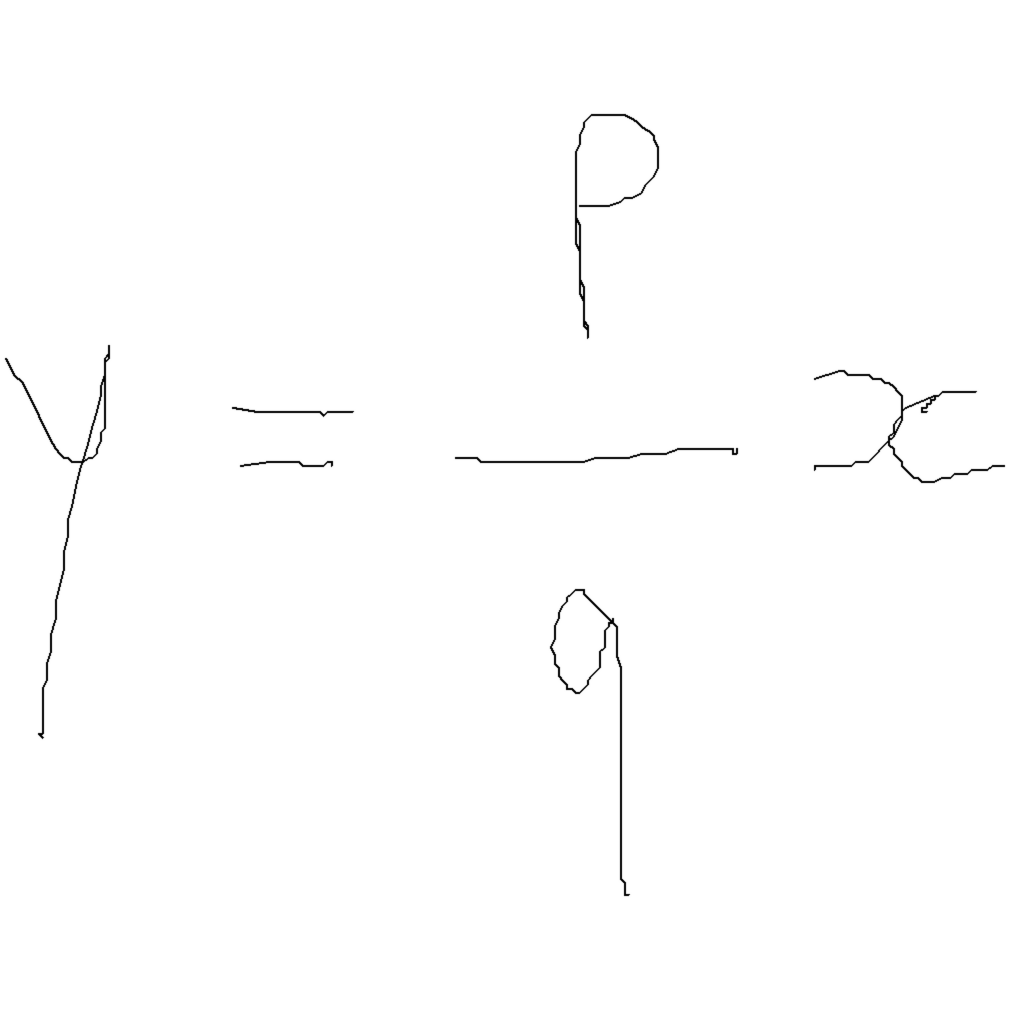 y = \frac{p}{q} x